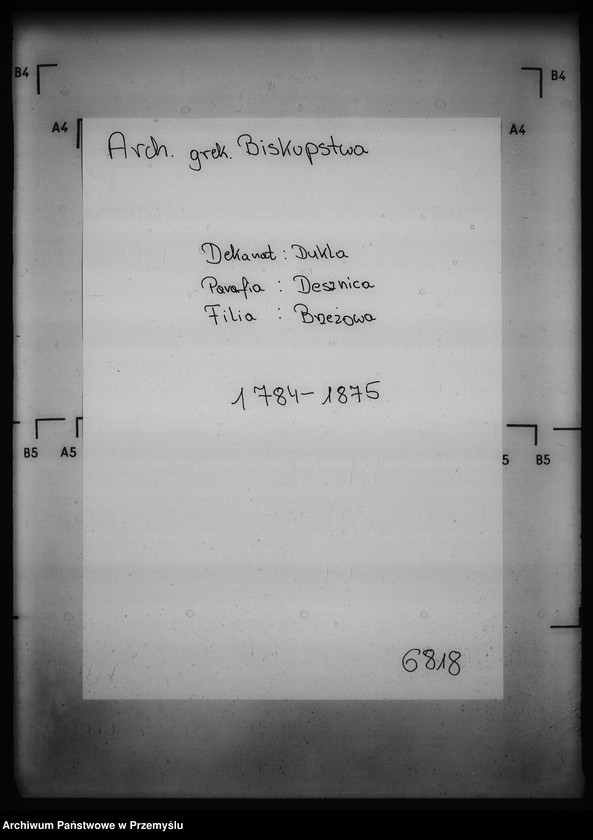 B4
B4
A4
A4
Arch. grek. Biskupstwa
Dekanat : Dukla
Parafia : Desznica
Filia : Brzeżowa
1784-1875
B5
A5
5
B5
6818
Archiwum Państwowe w Przemyślu